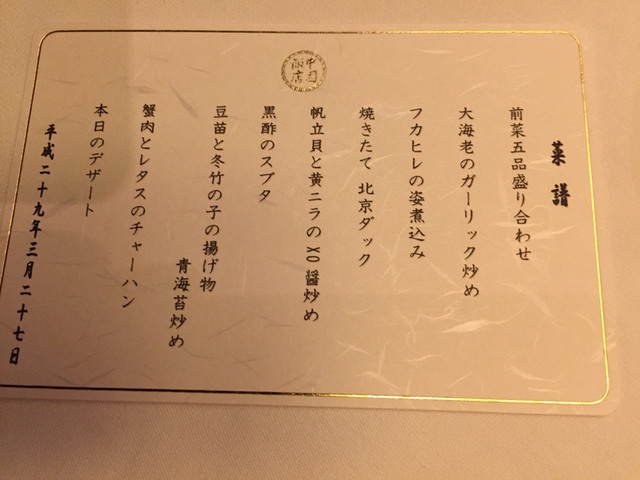 中国飯店
菜譜
前菜五品盛り合わせ
大海老のガーリック炒め
フカヒレの姿煮込み
焼きたて 北京ダック
帆立貝と黄ニラのXO醤炒め
黒酢のスブタ
豆苗と冬竹の子の揚げ物
青海苔炒め
蟹肉とレタスのチャーハン
本日のデザート
平成二十九年三月二十七日